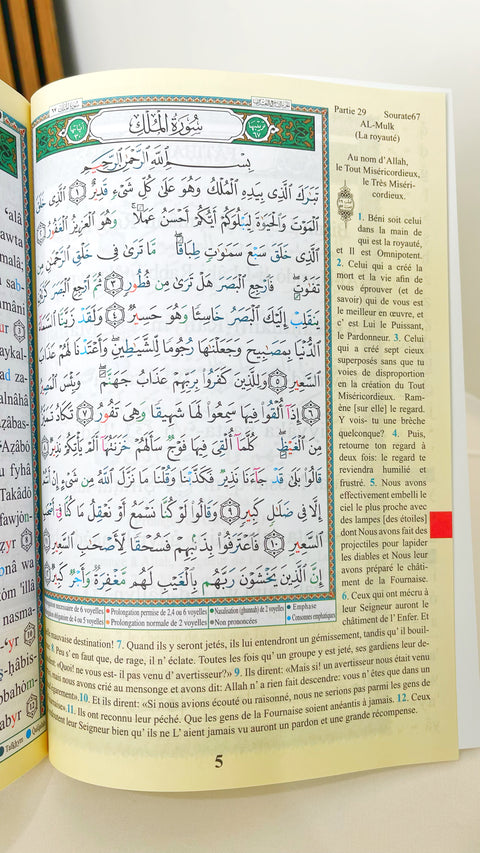 ‘alâ
awta
malâ;
a sab-
mâni
ur
aykal-
ad za-
alnâhâ
azâbas-
Azâbô
u fyhâ
Takâdô
fawjôn-
zyr
ônâ wa
ôm 'illâ
nasma-
yr
ḥâbis-
bahôm
abyr
سُورَةُ الْمُلْكِ
بِسْمِ اللَّهِ الرَّحْمَٰنِ الرَّحِيمِ
تَبَارَكَ الَّذِي بِيَدِهِ الْمُلْكُ وَهُوَ عَلَىٰ كُلِّ شَيْءٍ قَدِيرٌ ١ الَّذِي خَلَقَ
الْمَوْتَ وَالْحَيَاةَ لِيَبْلُوَكُمْ أَيُّكُمْ أَحْسَنُ عَمَلًا ۚ وَهُوَ الْعَزِيزُ الْغَفُورُ ٢
الَّذِي خَلَقَ سَبْعَ سَمَاوَاتٍ طِبَاقًا ۖ مَّا تَرَىٰ فِي خَلْقِ الرَّحْمَٰنِ مِن
تَفَاوُتٍ ۖ فَارْجِعِ الْبَصَرَ هَلْ تَرَىٰ مِن فُطُورٍ ٣ ثُمَّ ارْجِعِ الْبَصَرَ كَرَّتَيْنِ
يَنقَلِبْ إِلَيْكَ الْبَصَرُ خَاسِئًا وَهُوَ حَسِيرٌ ٤ وَلَقَدْ زَيَّنَّا السَّمَاءَ
الدُّنْيَا بِمَصَابِيحَ وَجَعَلْنَاهَا رُجُومًا لِّلشَّيَاطِينِ ۖ وَأَعْتَدْنَا لَهُمْ عَذَابَ
السَّعِيرِ ٥ وَلِلَّذِينَ كَفَرُوا بِرَبِّهِمْ عَذَابُ جَهَنَّمَ ۖ وَبِئْسَ الْمَصِيرُ
٦ إِذَا أُلْقُوا فِيهَا سَمِعُوا لَهَا شَهِيقًا وَهِيَ تَفُورُ ٧ تَكَادُ تَمَيَّزُ
مِنَ الْغَيْظِ ۖ كُلَّمَا أُلْقِيَ فِيهَا فَوْجٌ سَأَلَهُمْ خَزَنَتُهَا أَلَمْ يَأْتِكُمْ نَذِيرٌ ٨
قَالُوا بَلَىٰ قَدْ جَاءَنَا نَذِيرٌ فَكَذَّبْنَا وَقُلْنَا مَا نَزَّلَ اللَّهُ مِن شَيْءٍ إِنْ أَنتُمْ
إِلَّا فِي ضَلَالٍ كَبِيرٍ ٩ وَقَالُوا لَوْ كُنَّا نَسْمَعُ أَوْ نَعْقِلُ مَا كُنَّا فِي أَصْحَابِ
السَّعِيرِ ١٠ فَاعْتَرَفُوا بِذَنبِهِمْ فَسُحْقًا لِّأَصْحَابِ السَّعِيرِ ١١
إِنَّ الَّذِينَ يَخْشَوْنَ رَبَّهُم بِالْغَيْبِ لَهُم مَّغْفِرَةٌ وَأَجْرٌ كَبِيرٌ ١٢
Partie 29 Sourate67
AL-Mulk
(La royauté)
Au nom d'Allah,
le Tout Miséricordieux,
le Très Miséri-
cordieux.
1. Béni soit celui
dans la main de
qui est la royauté,
et Il est Omnipotent.
2. Celui qui a créé la
mort et la vie afin de
vous éprouver (et de
savoir) qui de vous est
le meilleur en œuvre, et
c' est Lui le Puissant,
le Pardonneur. 3. Celui
qui a créé sept cieux
superposés sans que tu
voies de disproportion
en la création du Tout
Miséricordieux. Ram-
ène [sur elle] le regard.
Y vois- tu une brèche
quelconque? 4. Puis,
retourne ton regard à
deux fois: le regard te
reviendra humilié et
frustré. 5. Nous avons
effectivement embelli le
ciel le plus proche avec
des lampes [des étoiles]
dont Nous avons fait des
projectiles pour lapider
les diables et Nous leur
avons préparé le châti-
ment de la Fournaise.
6. Ceux qui ont mécru à
leur Seigneur auront le
châtiment de l' Enfer. Et
nécessaire de 6 voyelles Prolongation permise de 2,4 ou 6 voyelles Nasalisation (ghunnah) de 2 voyelles Emphase
obligatoire de 4 ou 5 voyelles Prolongation normale de 2 voyelles Non prononcées Consonnes emphatiques
mauvaise destination! 7. Quand ils y seront jetés, ils lui entendront un gémissement, tandis qu' il bouil-
8. Peu s' en faut que, de rage, il n' éclate. Toutes les fois qu' un groupe y est jeté, ses gardiens leur de-
«Quoi! ne vous est- il pas venu d' avertisseur?» 9. Ils dirent: «Mais si! un avertisseur nous était venu
nous avons crié au mensonge et avons dit: Allah n' a rien fait descendre: vous n' êtes que dans un
10. Et ils dirent: «Si nous avions écouté ou raisonné, nous ne serions pas parmi les gens de
11. Ils ont reconnu leur péché. Que les gens de la Fournaise soient anéantis à jamais. 12. Ceux
leur Seigneur bien qu' ils ne L' aient jamais vu auront un pardon et une grande récompense.
5